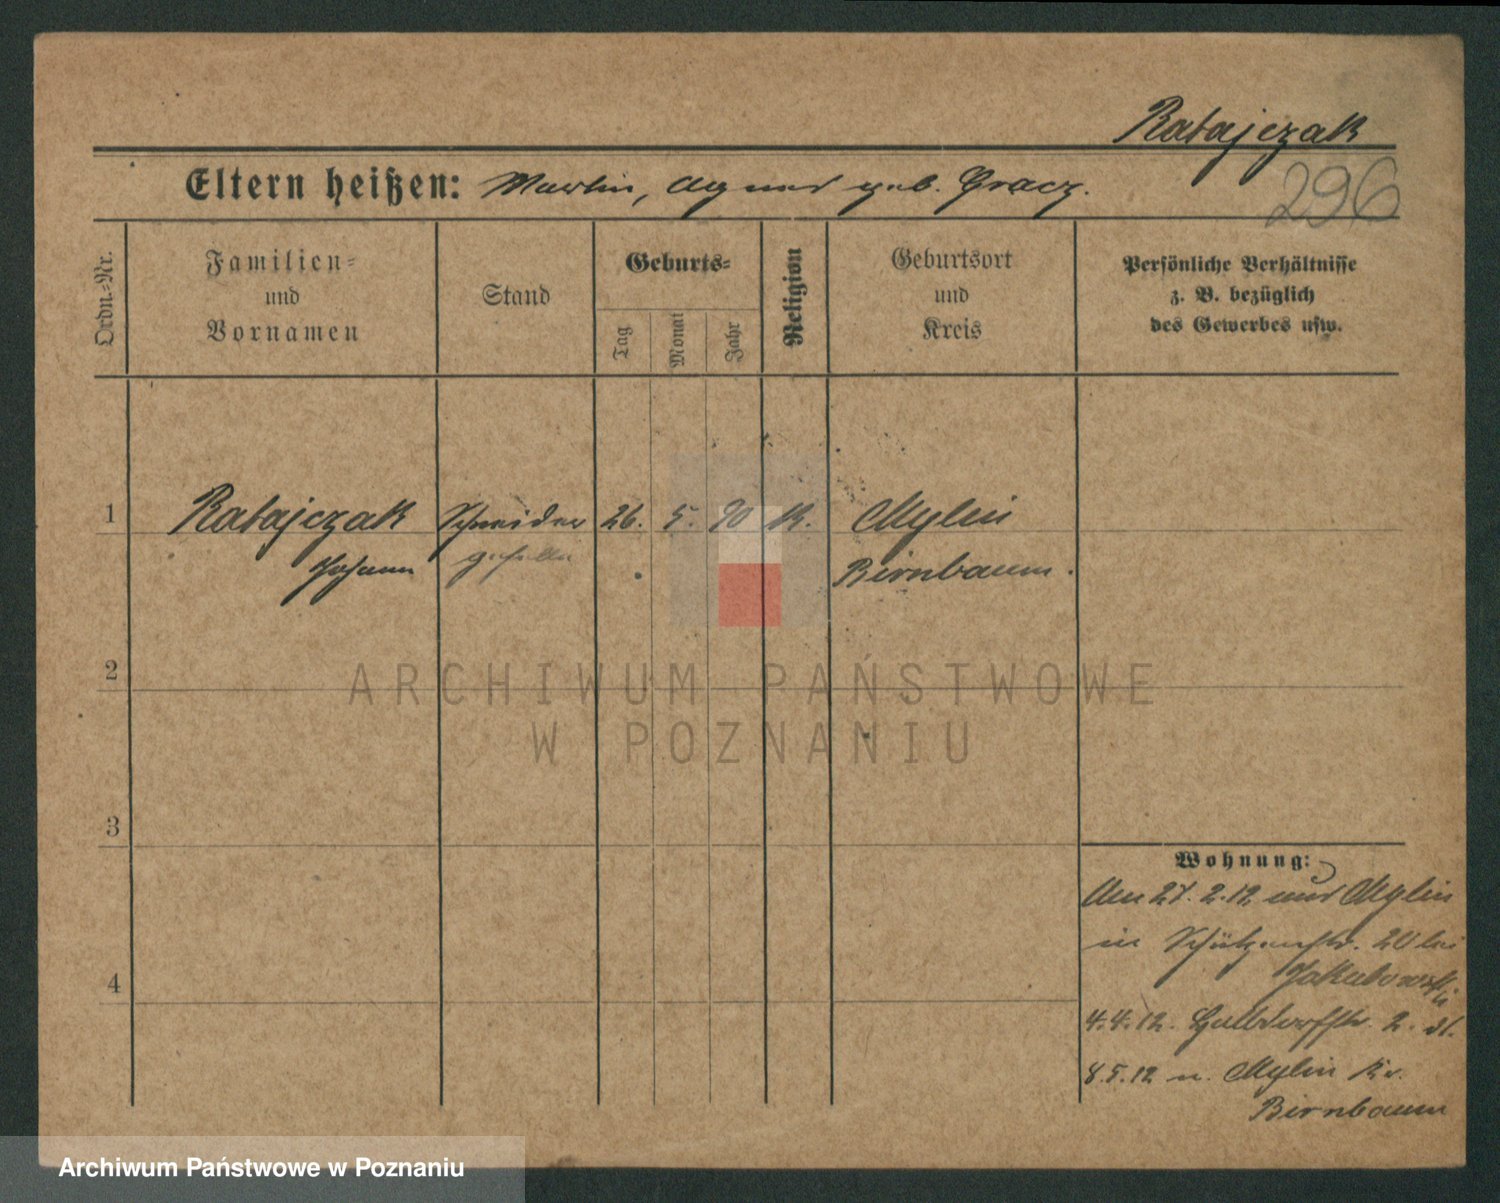 Ratajczak
Eltern heißen: Martin, Agnes geb. Gracz.
296
Ordn.-Nr.
Familien-
und
Vornamen
Stand
Geburts-
Tag
Monat
Jahr
Religion
Geburtsort
und
Kreis
Persönliche Verhältnisse
z. B. bezüglich
des Gewerbes usw.
1
Ratajczak
Johann
Schneider
geselle
26.
5.
90
K.
Mylin
Birnbaum.
2
3
4
Wohnung:
Am 27.2.12 aus Mylin
in Schützenstr. 20 bei
Jakubowski
4.4.12. Halbdorfstr. 2.
8.5.12 n. Mylin Kr.
Birnbaum
ARCHIWUM PAŃSTWOWE
W POZNANIU
Archiwum Państwowe w Poznaniu